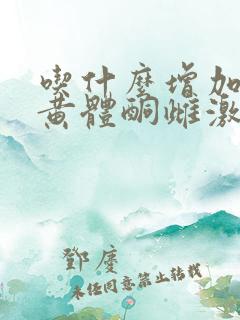 喫什麼增加
黃體酮雌激
鄧慶
未經同意禁止轉載